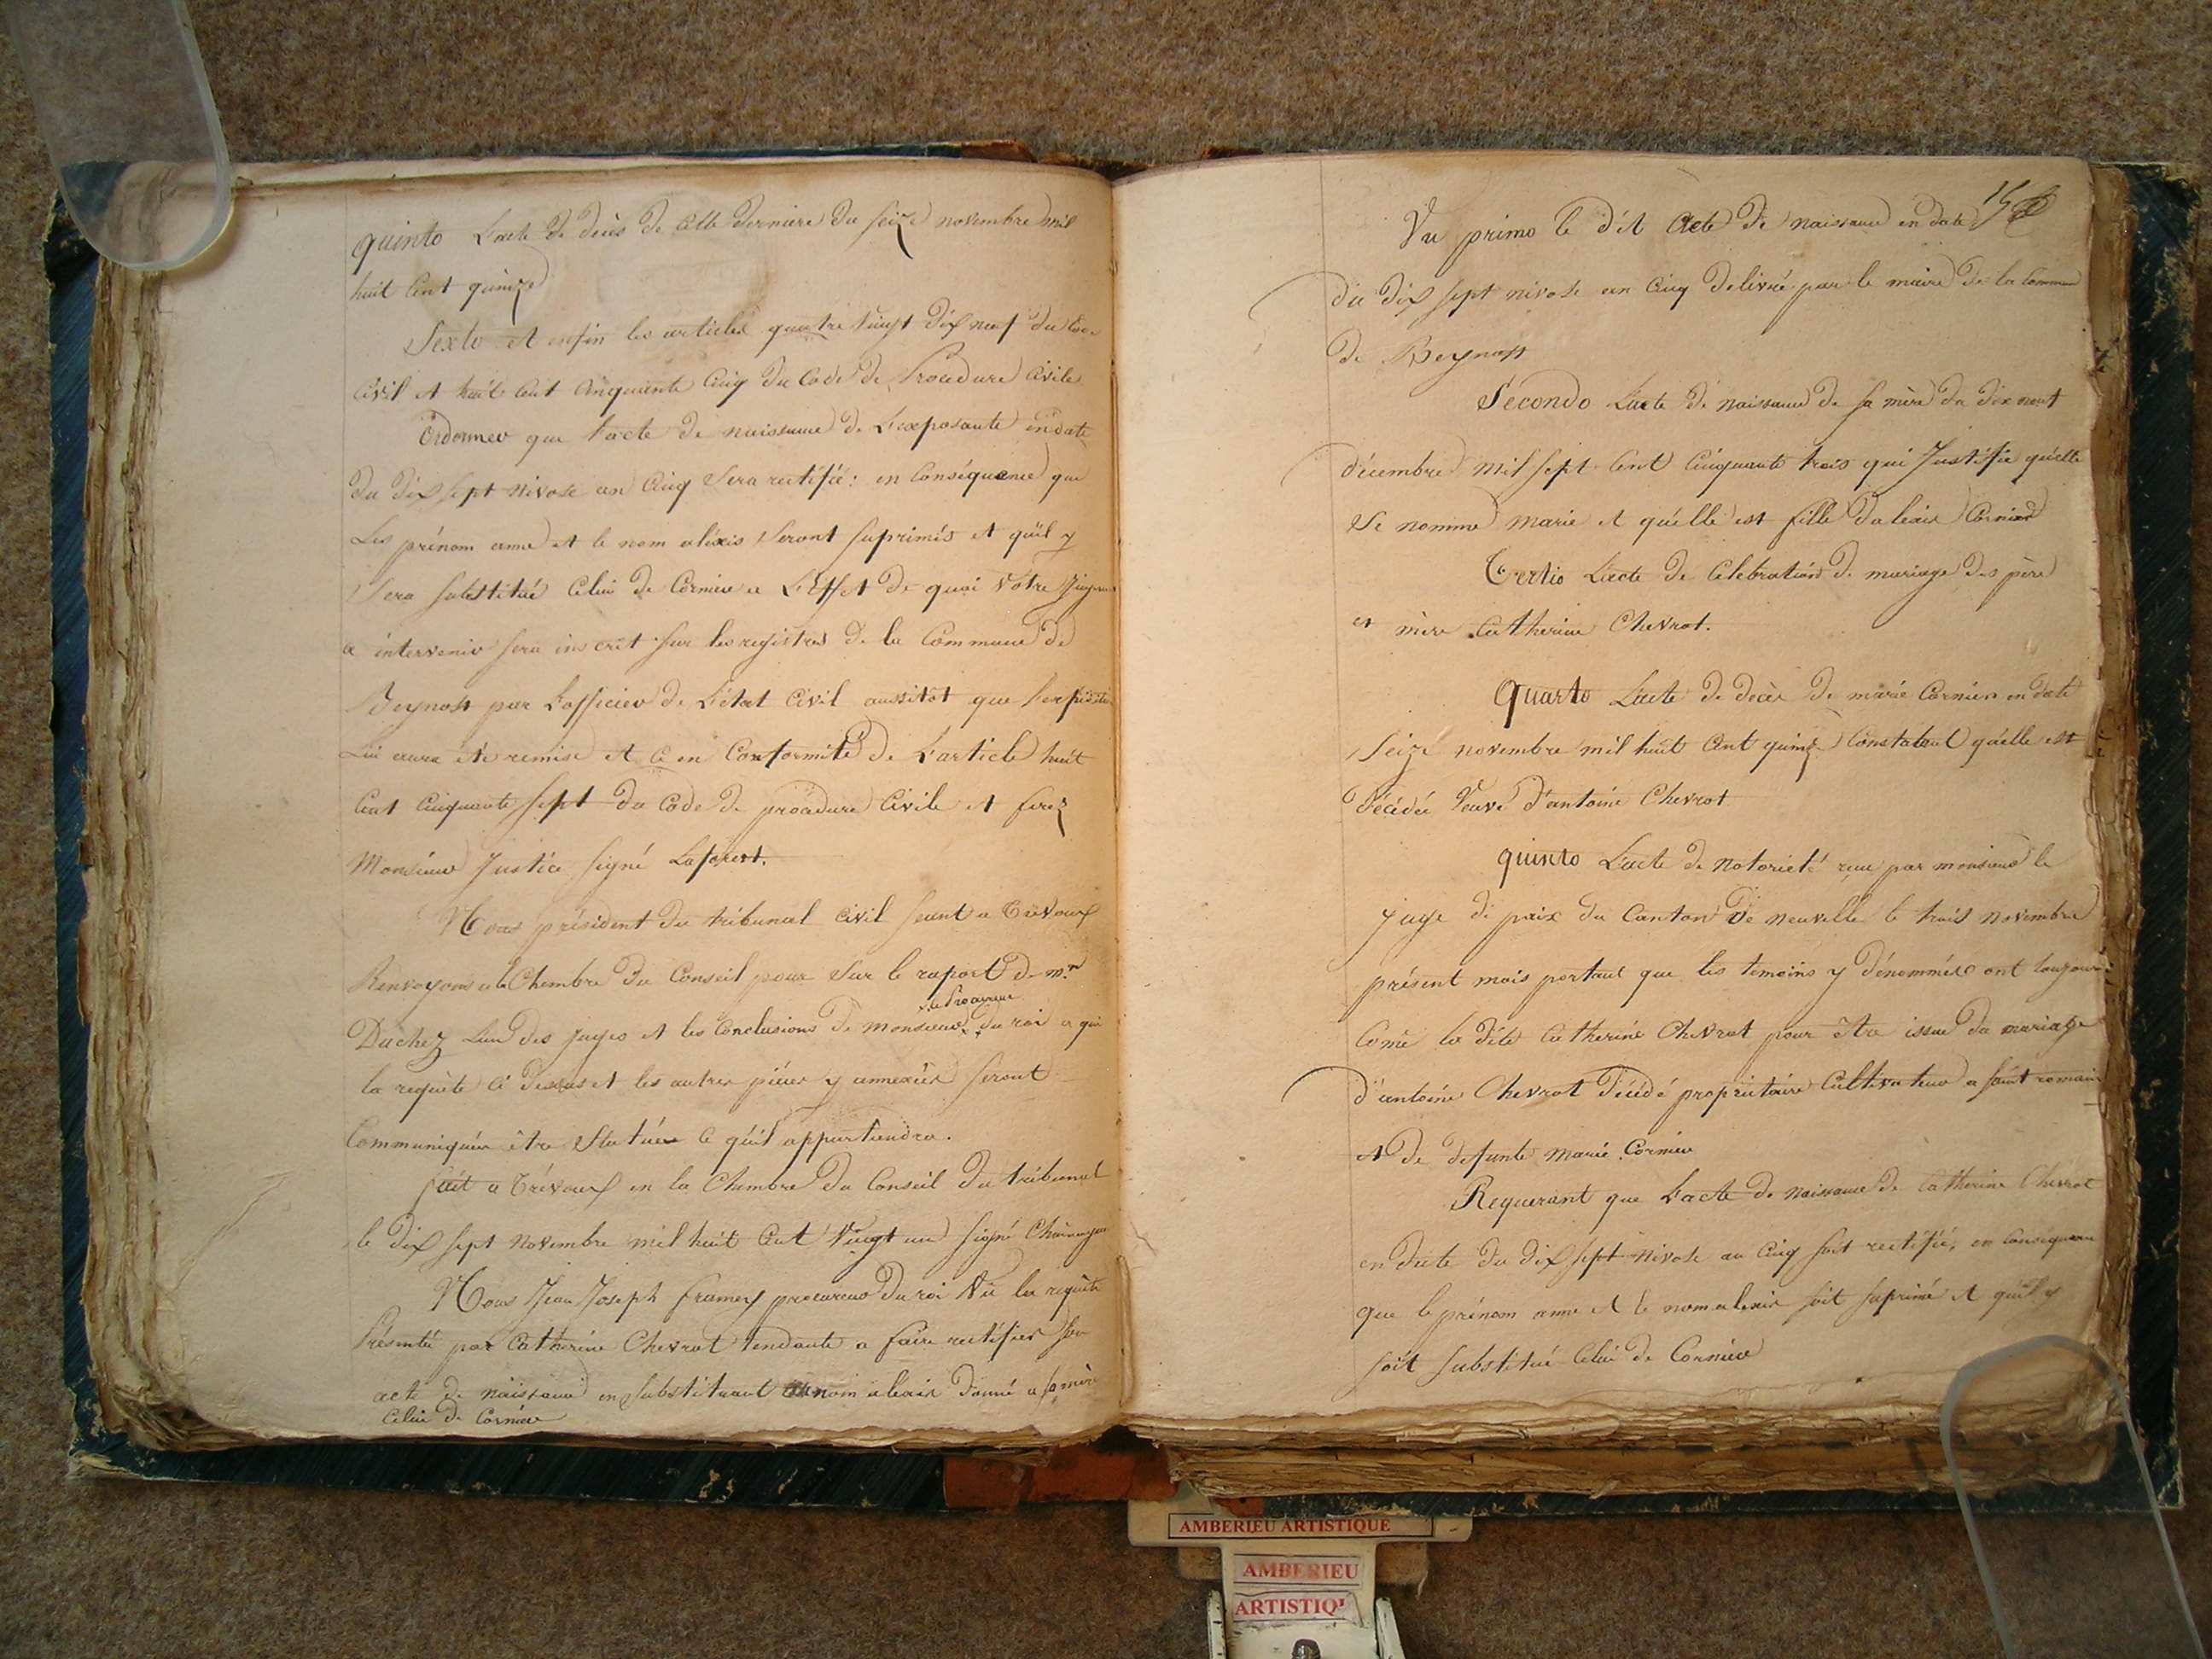 quinto L'acte de decès de cette derniere du seize novembre mil
huit cent quinze
Sexto et enfin les articles quatre vingt dix neuf du Code
Civil et huit cent cinquante cinq du Code de Procedure Civile
Ordonner que l'acte de naissance de L'exposante en date
du dix sept nivose an cinq Sera rectifié: en conséquence que
Les prénom anne et le nom alexis Seront suprimés et qu'il y
Sera substitué Celui de Cornier a L'Effet de quoi Votre
a intervenir sera inscrit sur les registres de la Commune de
Beynost par L'officier de L'état Civil aussitôt que
Lui aura été remise et ce en Conformité de L'article huit
Cent Cinquante sept du Code de procedure Civile et ferez
Monsieur Justice signé Laforest.
Nous président du tribunal civil seant a Trévoux
Renvoyons a la Chambre du Conseil pour Sur le raport de mr
Duchez L'un des juges et les Conclusions de monsieur le Procureur du roi a qui
la requête ci dessus et les autres pièces y annexées seront
Communiquées être Statuer ce qu'il appartiendra.
fait a Trévoux en la Chambre du Conseil du tribunal
le dix sept novembre mil huit Cent Vingt un signé
Nous Jean Joseph procureur du roi Vu la requête
Présentée par Catherine Chevrot tendante a faire rectifier son
acte de naissance en substituant au nom alexis donné a sa mère
celui de Cornier
Vu primo le dit acte de naissance en date
du dix sept nivose an cinq delivré par le maire de la Commune
de Beynost
Secondo L'acte de naissance de sa mère du dix neuf
décembre mil sept Cent Cinquante trois qui Justifie qu'elle
Se nomme marie et qu'elle est fille d'alexis Cornier
Tertio L'acte de Célébration de mariage des père
et mère Catherine Chevrot.
Quarto L'acte de decès de marie Cornier en date
Seize novembre mil huit Cent quinze Constatant qu'elle est
décédée Veuve d'antoine Chevrot
quinto L'acte de notorieté reçu par monsieur le
juge de paix du Canton de neuville le trois novembre
présent mois portant que les temoins y dénommés ont toujours
la dite Catherine Chevrot pour être issue du mariage
d'antoine Chevrot décédé propriétaire Cultivateur a saint romain
et de defunte marie Cornier
Requerant que L'acte de naissance de Catherine Chevrot
en date du dix sept nivose an cinq soit rectifié, en conséquence
que le prénom anne et le nom alexis soit suprimé et qu'il y
soit substitué Celui de Cornier
AMBERIEU ARTISTIQUE
AMBERIEU
ARTISTIQ